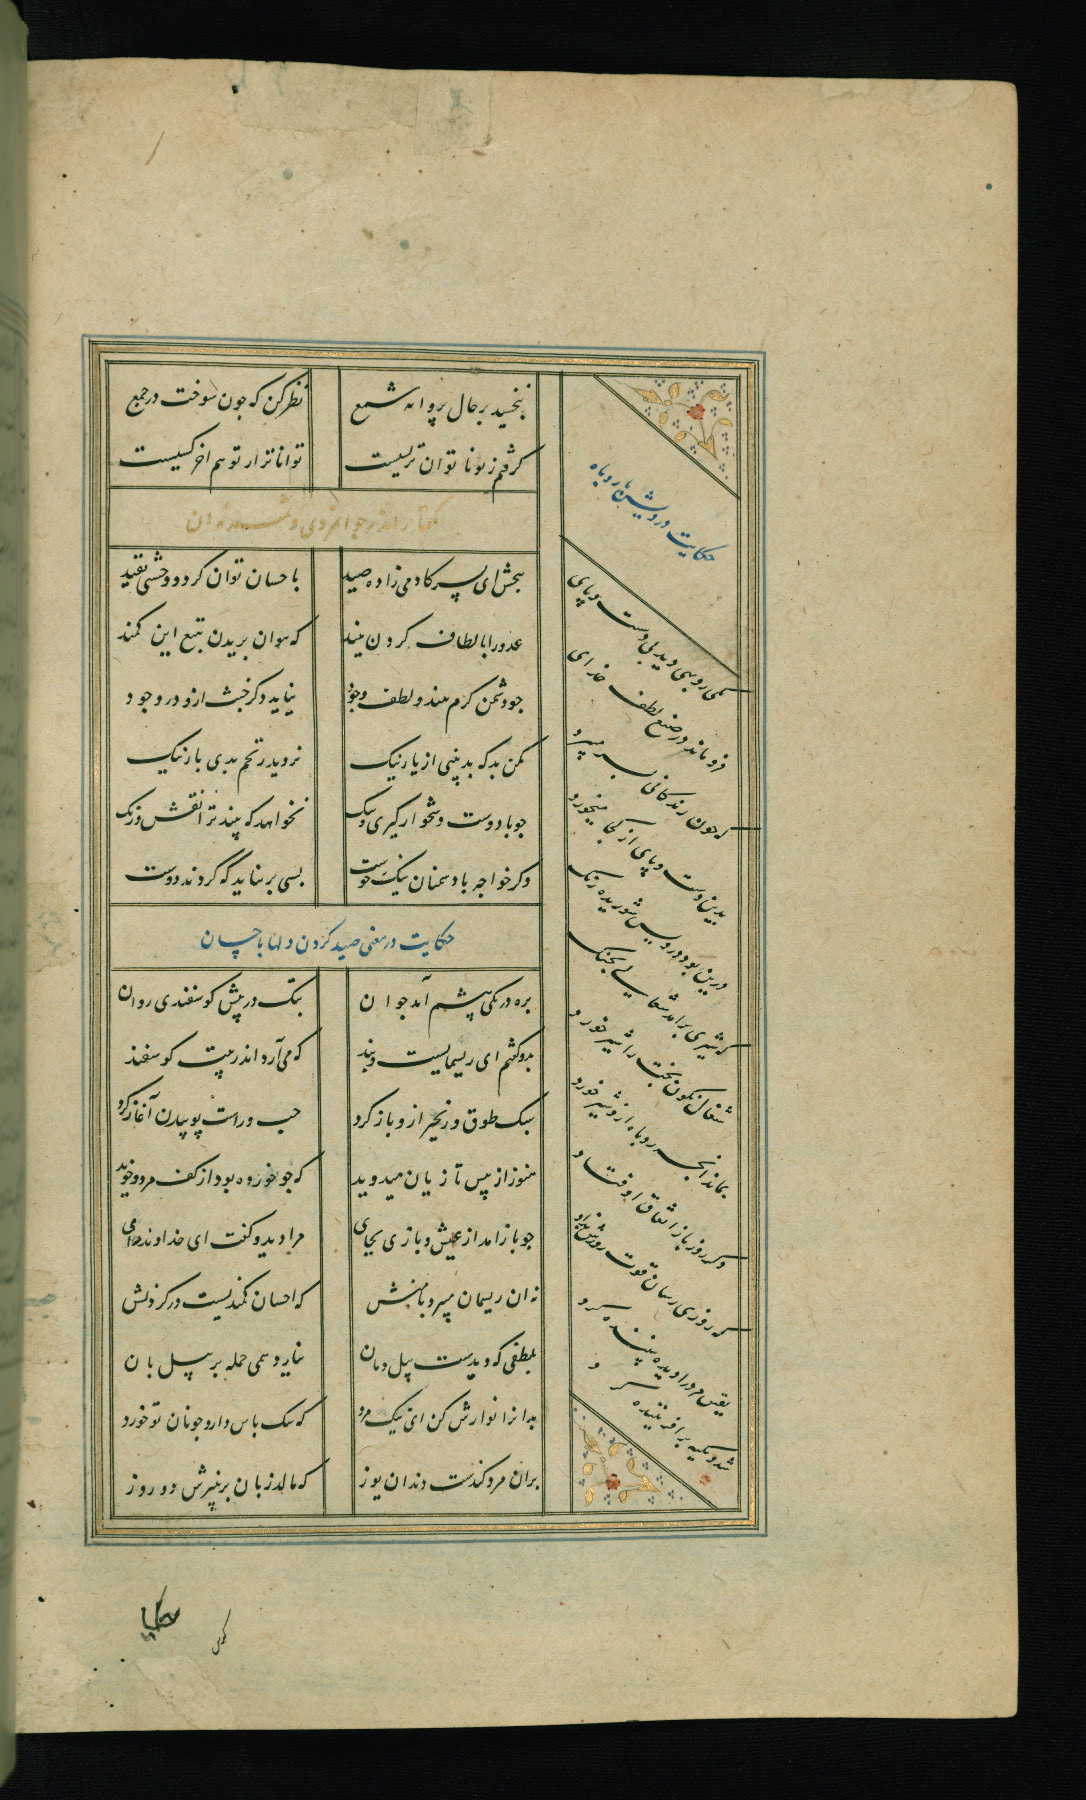 نبخشید بر حال پروانه شمع نظر کن که چون سوخت در جمع
گرفتم ز تو ناتوان تر بسیست تواناتر از تو هم اخر کسیست
گفتار اندر جوانمردی و
ببخش ای پسر کادمی زاده صید باحسان توان کرد و وحشی بقید
عدو را بالطاف گردن ببند که نتوان بریدن بتیغ این کمند
چو دشمن کرم بیند و لطف وجود نیاید دگر خبث ازو در وجود
مکن بد که بد بینی از یار نیک نروید ز تخم بدی بار نیک
چو با دوست دشخوار گیری و تنگ نخواهد که بیند ترا نقش و رنگ
وگر خواجه با دشمنان نیک خوست بسی بر نیاید که گردند دوست
حکایت در معنی صید کردن دلها باحسان
بره در یکی پیشم آمد جوان بتک در پیش گوسفندی روان
بدو گفتم ای ریسمانست و بند که می آرد اندر پیت گوسفند
سبک طوق و زنجیر ازو باز کرد چپ و راست پوییدن آغاز کرد
هنوز از پیس تازیان میدوید که جو خورده بود از کف مرد و خوید
چو باز امد از عیش و بازی بجای مرا دید و گفت ای خداوند رای
نه ان ریسمان میبرد با منش که احسان کمندیست در گردنش
بلطفی که دیدست پیل دمان نیارد همی حمله بر پیل بان
بدانرا نوازش کن ای نیک مرد که سک پاس دارد چو نان تو خورد
بران مرد کندست دندان یوز که مالد زبان بر پنیرش دو روز
حکایت درویش با روباه
یکی روبهی دید بی دست و پای
فرو ماند در صنع لطف خدای
که چون زندگانی بسر میبرد
بدین دست و پای از کجا میخورد
درین بود درویش شوریده رنگ
که شیری برآمد شغالی بچنگ
شغال نگون بخت را شیر خورد
بماند انچه روباه ازو شیر خورد
دگر روز باز اتفاق اوفتاد
که روزی رسان قوت روزش بداد
یقین مرد را دیده بیننده کرد
شد و تکیه بر آفریننده کرد